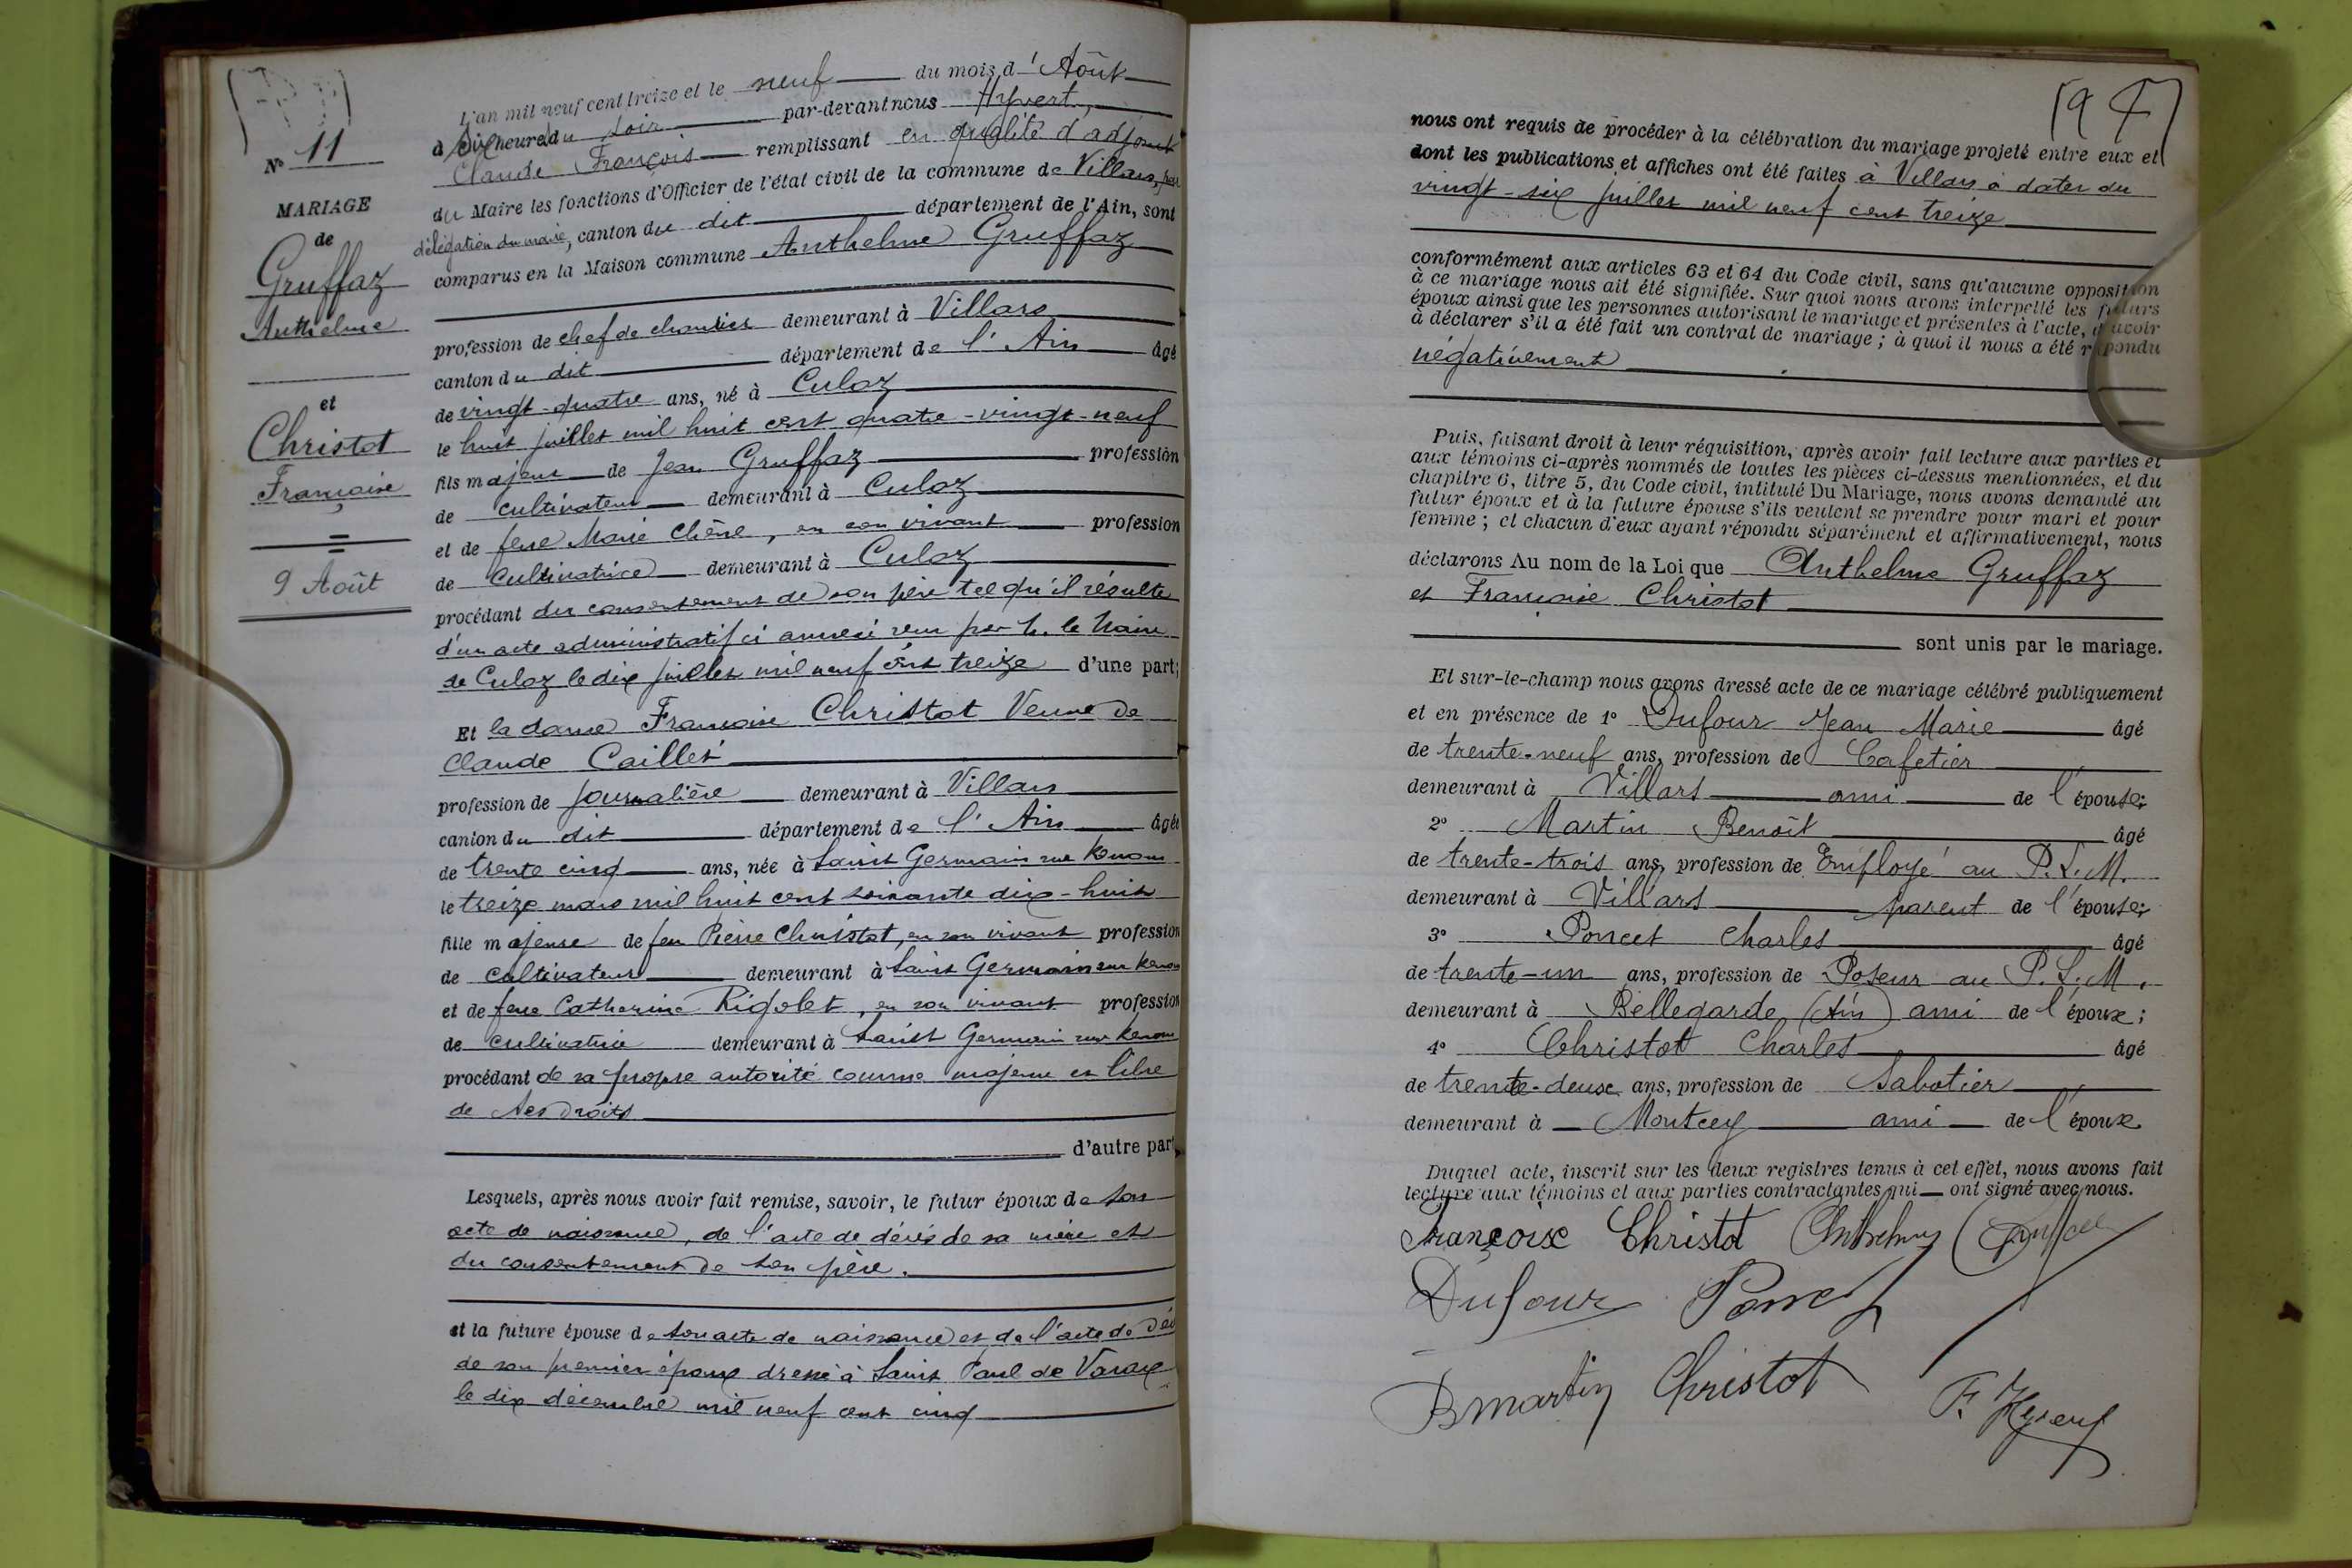 N° 11
MARIAGE
de
Gruffaz
Anthelme
et
Christot
Françoise
9 Août
L'an mil neuf cent treize et le neuf du mois d'Août
à six heures du soir par-devant nous Hyvert,
Claude François remplissant en qualité d'adjoint
du Maire les fonctions d'Officier de l'état civil de la commune de Villars, par
délégation du maire, canton du dit département de l'Ain, sont
comparus en la Maison commune Anthelme Gruffaz
profession de chef de chantier demeurant à Villars
canton du dit département de l'Ain âgé
de vingt-quatre ans, né à Culoz
le huit juillet mil huit cent quatre-vingt-neuf
fils majeur de Jean Gruffaz profession
de cultivateur demeurant à Culoz
et de feue Marie Chêne, en son vivant profession
de cultivatrice demeurant à Culoz
procédant du consentement de son père tel qu'il résulte
d'un acte administratif ci annexé reçu par M. le Maire
de Culoz le dix juillet mil neuf cent treize d'une part;
Et la dame Françoise Christot Veuve de
Claude Caillet
profession de journalière demeurant à Villars
canton du dit département de l'Ain âgée
de trente cinq ans, née à Saint Germain sur Renom
le treize mars mil huit cent soixante dix-huit
fille majeure de feu Pierre Christot, en son vivant profession
de cultivateur demeurant à Saint Germain sur Renom
et de feue Catherine Rigolet, en son vivant profession
de cultivatrice demeurant à Saint Germain sur Renom
procédant de sa propre autorité comme majeure et libre
de ses droits
d'autre part
Lesquels, après nous avoir fait remise, savoir, le futur époux de son
acte de naissance, de l'acte de décès de sa mère et
du consentement de son père.
et la future épouse de son acte de naissance et de l'acte de décès
de son premier époux dressé à Saint Paul de Varax
le dix décembre mil neuf cent cinq
nous ont requis de procéder à la célébration du mariage projeté entre eux et
dont les publications et affiches ont été faites à Villars à dater du
vingt-six juillet mil neuf cent treize
conformément aux articles 63 et 64 du Code civil, sans qu'aucune opposition
à ce mariage nous ait été signifiée. Sur quoi nous avons interpellé les futurs
époux ainsi que les personnes autorisant le mariage et présentes à l'acte, d'avoir
à déclarer s'il a été fait un contrat de mariage; à quoi il nous a été répondu
négativement
Puis, faisant droit à leur réquisition, après avoir fait lecture aux parties et
aux témoins ci-après nommés de toutes les pièces ci-dessus mentionnées, et du
chapitre 6, titre 5, du Code civil, intitulé Du Mariage, nous avons demandé au
futur époux et à la future épouse s'ils veulent se prendre pour mari et pour
femme; et chacun d'eux ayant répondu séparément et affirmativement, nous
déclarons Au nom de la Loi que Anthelme Gruffaz
et Françoise Christot
sont unis par le mariage.
Et sur-le-champ nous avons dressé acte de ce mariage célébré publiquement
et en présence de 1° Dufour Jean Marie âgé
de trente-neuf ans, profession de Cafetier
demeurant à Villars ami de l'épouse;
2° Martin Benoît âgé
de trente-trois ans, profession de Employé au P.L.M.
demeurant à Villars parent de l'épouse;
3° Poncet Charles âgé
de trente-un ans, profession de Poseur au P.L.M.
demeurant à Bellegarde (Ain) ami de l'époux;
4° Christot Charles âgé
de trente-deux ans, profession de Sabotier
demeurant à Montcey ami de l'époux
Duquel acte, inscrit sur les deux registres tenus à cet effet, nous avons fait
lecture aux témoins et aux parties contractantes qui ont signé avec nous.
Françoise Christot Anthelme Gruffaz
Dufour Poncet
B martin Christot F. Hyvert